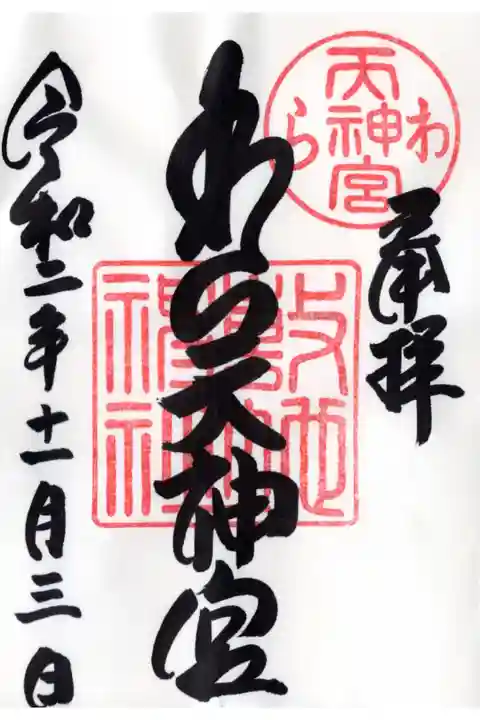 わら天神宮
奉拝
敷地
神社
わら天神宮
令和二年十一月三日